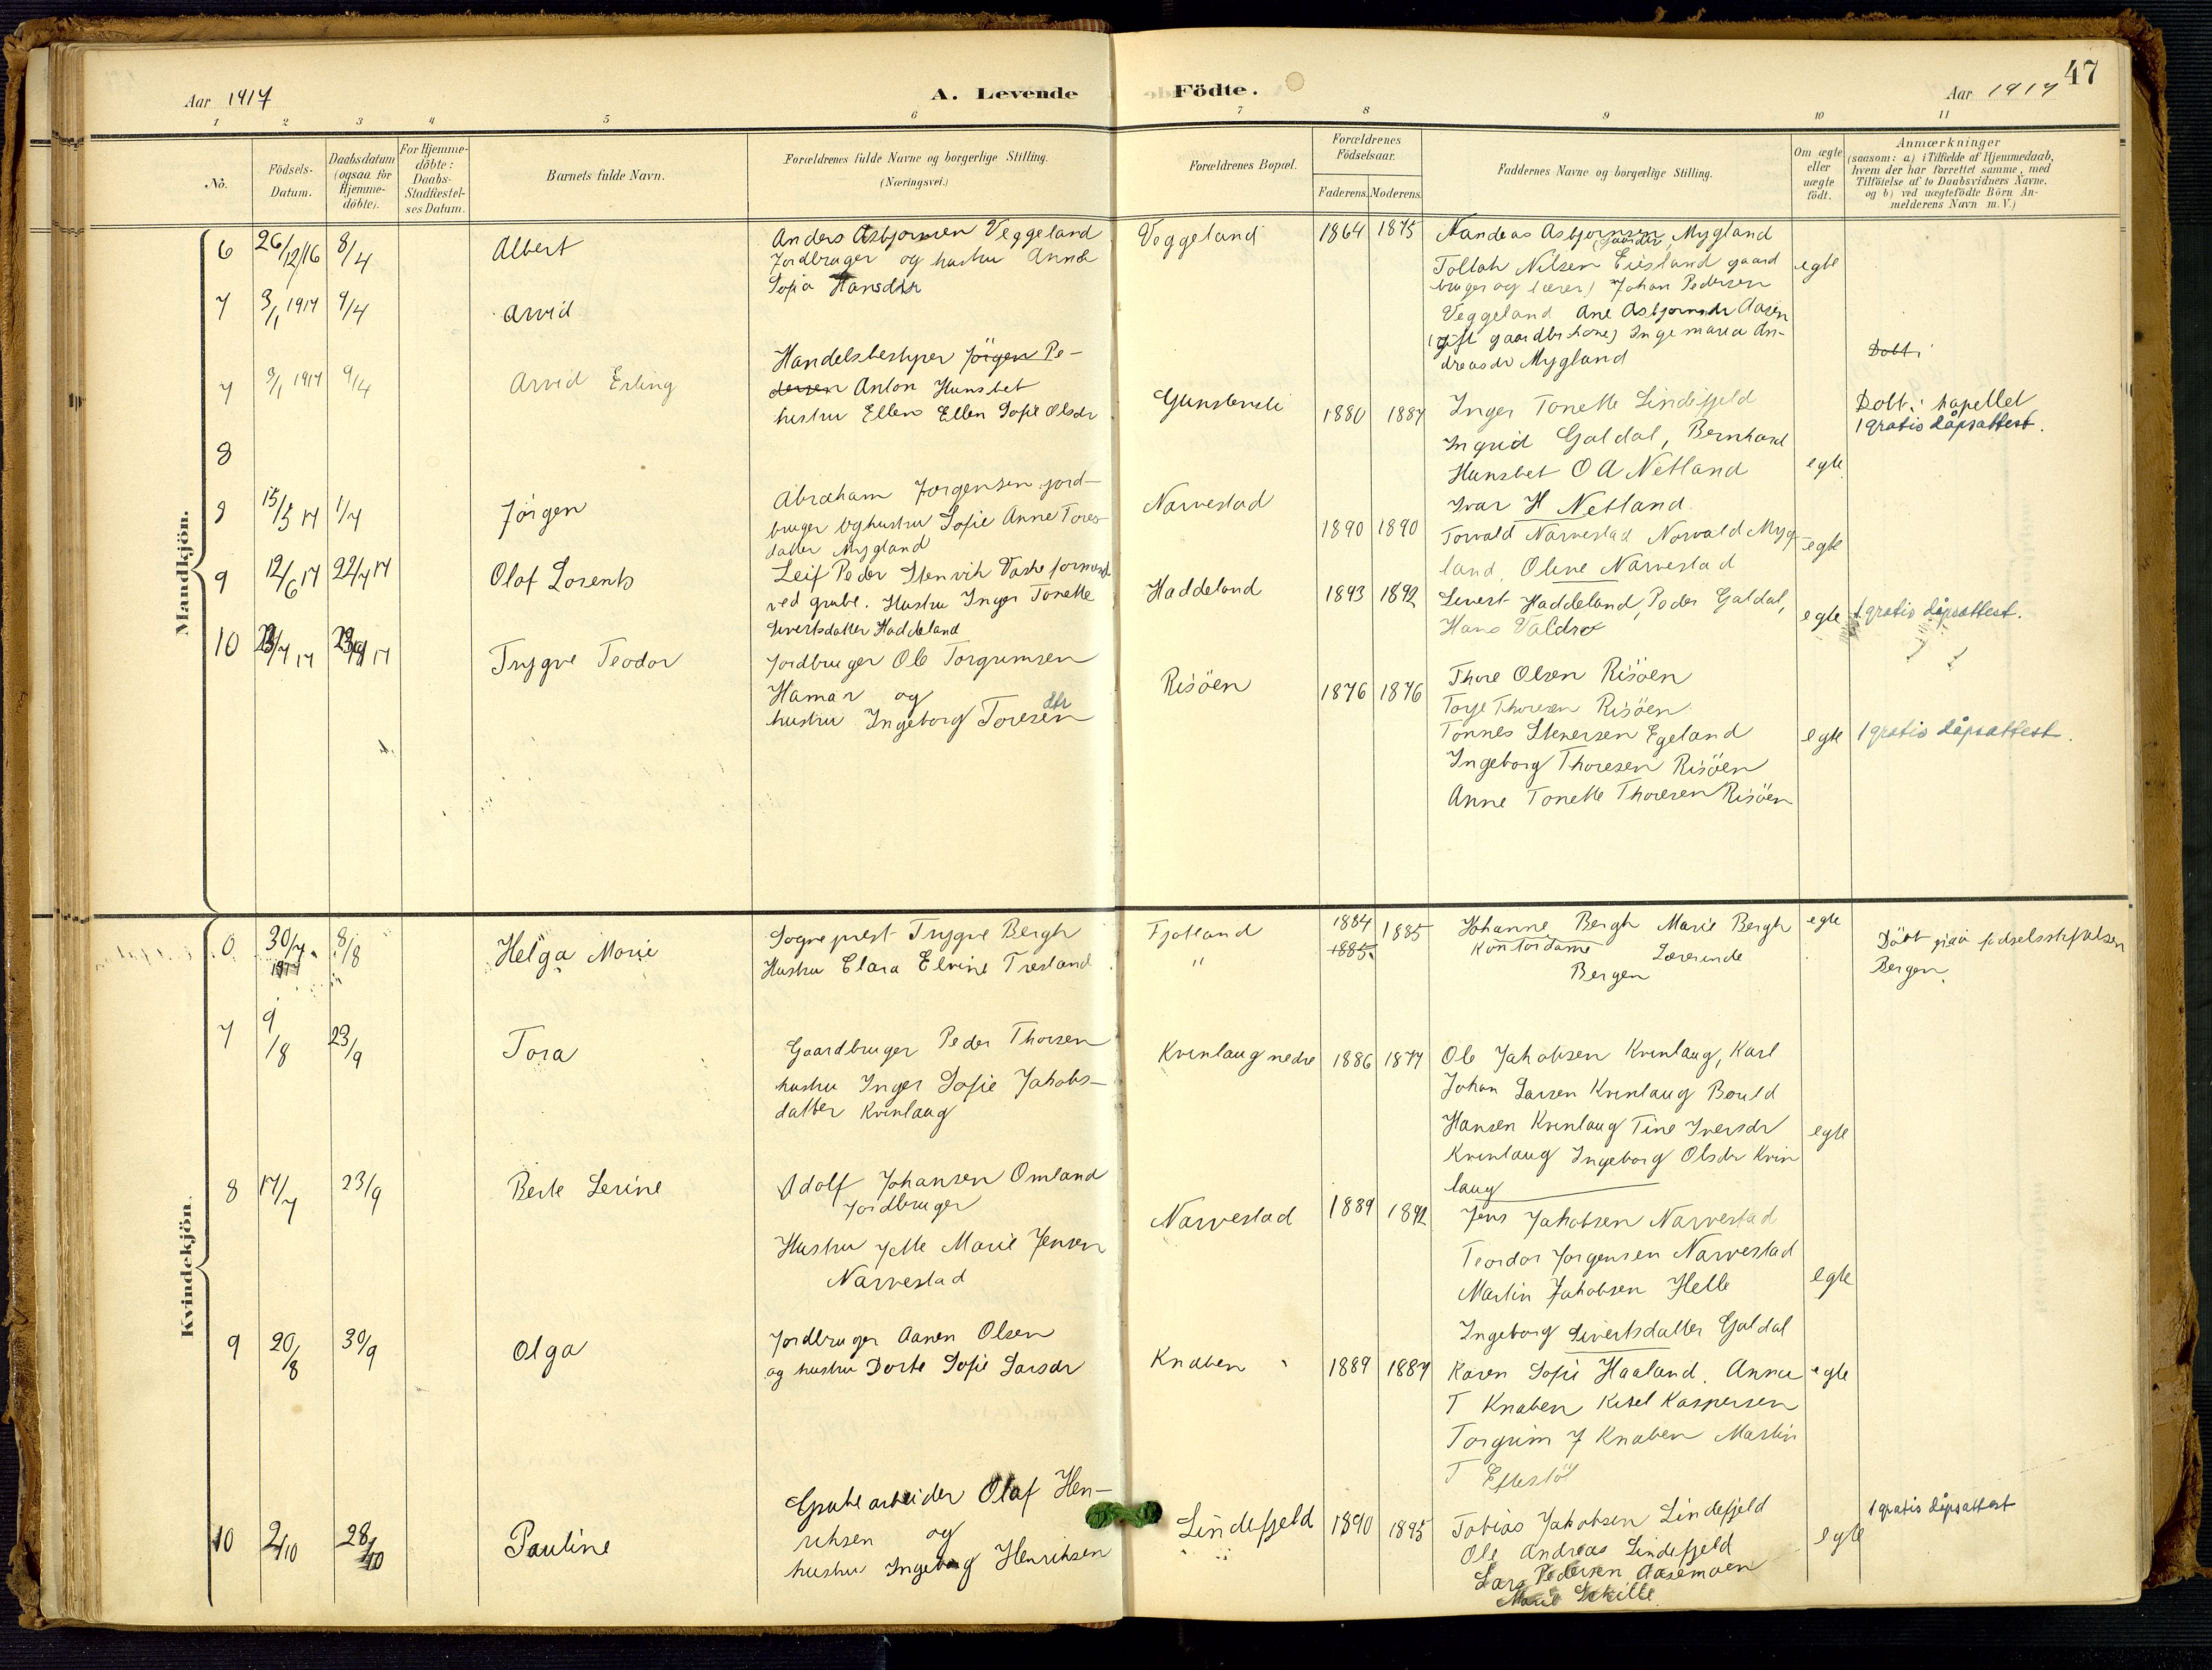 47
Aar 1917
A. Levende
Födte.
Aar 1917
1 2 3 4 5 6 7 8 9 10 11
No.
Födsels-Datum.
Daabsdatum (ogsaa for Hjemme-döbte).
For Hjemme-döbte: Daabs-Stadfæstel-ses Datum.
Barnets fulde Navn.
Forældrenes fulde Navne og borgerlige Stilling.
(Næringsvei.)
Forældrenes Bopæl.
Forældrenes Födselsaar.
Faderens.
Moderens.
Faddernes Navne og borgerlige Stilling.
Om ægte eller uægte födt.
Anmærkninger
(saasom: a) i Tilfælde af Hjemmedaab,
hvem der har forrettet samme, med
Tilföielse af to Daabsvidners Navne,
og b) ved uægtefödte Börn An-
melderens Navn m. V.)
Mandkjön.
6 26/12/16 8/4 Albert
Anders Asbjornsen Veggeland
Jordbruger og hustru Anna
Sofia Hansdtr
Veggeland 1864 1875
Nandeas Asbjornsen Mygland
Tollak Nilsen Eiesland gaard
bruger og lærer) Johan Pedersen
Veggeland Ane Asbjornsdr Aasen
(gift gaardbr kone) Ingemarea An-
dreasdr Mygland
egte
7 3/1 1917 9/4 Arvid
Döbt i
7 3/1 1917 9/4 Arvid Erling
Handelsbestyrer Jörgen Pe-
dersen Anton Hunsbet
hustru Ellen Ellen Sofie Olsdr
Gunstveit 1880 1887
Inger Tonette Lindefjeld
Ingrid Galdal, Bernhard
Hunsbet O A Netland
Ivar H Netland
egte
Döbt i kapellet
1 gratis dåpsattest.
8
9 15/5 17 1/7 Jørgen
Abraham Jørgensen jord-
bruger og hustru Sofie Anne Tores-
datter Mygland
Narvestad 1890 1890
Torvald Narvestad Norvald Myg-
land, Oline Narvestad
egte
9 12/6 17 22/7 17 Olaf Lorents
Leif Peder Stenvik Vaskeformand
ved grube. Hustru Inger Tonette
Sivertsdatter Haddeland
Haddeland 1893 1892
Sivert Haddeland, Peder Galdal,
Hans Valdrø
egte 1 gratis dåpsattest.
10 23/7 17 Trygve Teodor
Jordbruger Ole Torgrimsen
Hamar og
hustru Ingeborg Toresen dtr
Risöen 1876 1876
Thore Olsen Risöen
Torje Thoresen Risöen
Tonnes Stenersen Egeland
Ingeborg Thoresen Risöen
Anne Tonette Thoresen Risöen
egte 1 gratis dåpsattest.
Kvindekjön.
6 30/7 1917 8/8 Helga Marie
Sogneprest Trygve Bergh
Hustru Clara Elvine Tresland
Fjotland
"
1884 1885
1885
Johanne Bergh Marie Bergh
Kontordame Lærerinde
Bergen
egte
Döbt paa födselsstiftelsen
Bergen.
7 9/8 23/9 Tora
Gaardbruger Peder Thorsen
hustru Inger Sofie Jakobs-
datter Kvinlaug
Kvinlaug nedre 1886 1877
Ole Jakobsen Kvinlaug, Karl
Johan Larsen Kvinlaug Bould
Hansen Kvinlaug Tine Iversdr
Kvinlaug Ingeborg Olsdr Kvin
laug
egte
8 17/7 23/9 Berte Serine
Adolf Johansen Omland
Jordbruger
Hustru Jette Marie Jensen
Narvestad
Narvestad 1889 1892
Jens Jakobsen Narvestad
Teordor Jorgensen Narvestad
Martin Jakobsen Helle
Ingeborg Sivertsdatter Galdal
egte
9 20/8 30/9 Olga
Jordbruger Aanen Olsen
og hustru Dorte Sofie Larsdr
Knaben 1889 1887
Karen Sofie Haaland. Anna
T Knaben Kitel Kaspersen
Torgrim J Knaben Martin
T Eftestöl
egte
10 2/10 28/10 Pauline
Grubearbeider Olaf Hen-
riksen og
hustru Ingeborg Henriksen
Lindefjeld 1890 1895
Tobias Jakobsen Lindefjeld
Ole Andreas Lindefjeld
Lars Pedersen Aasemoen
Marie
egte
1 gratis dåpsattest